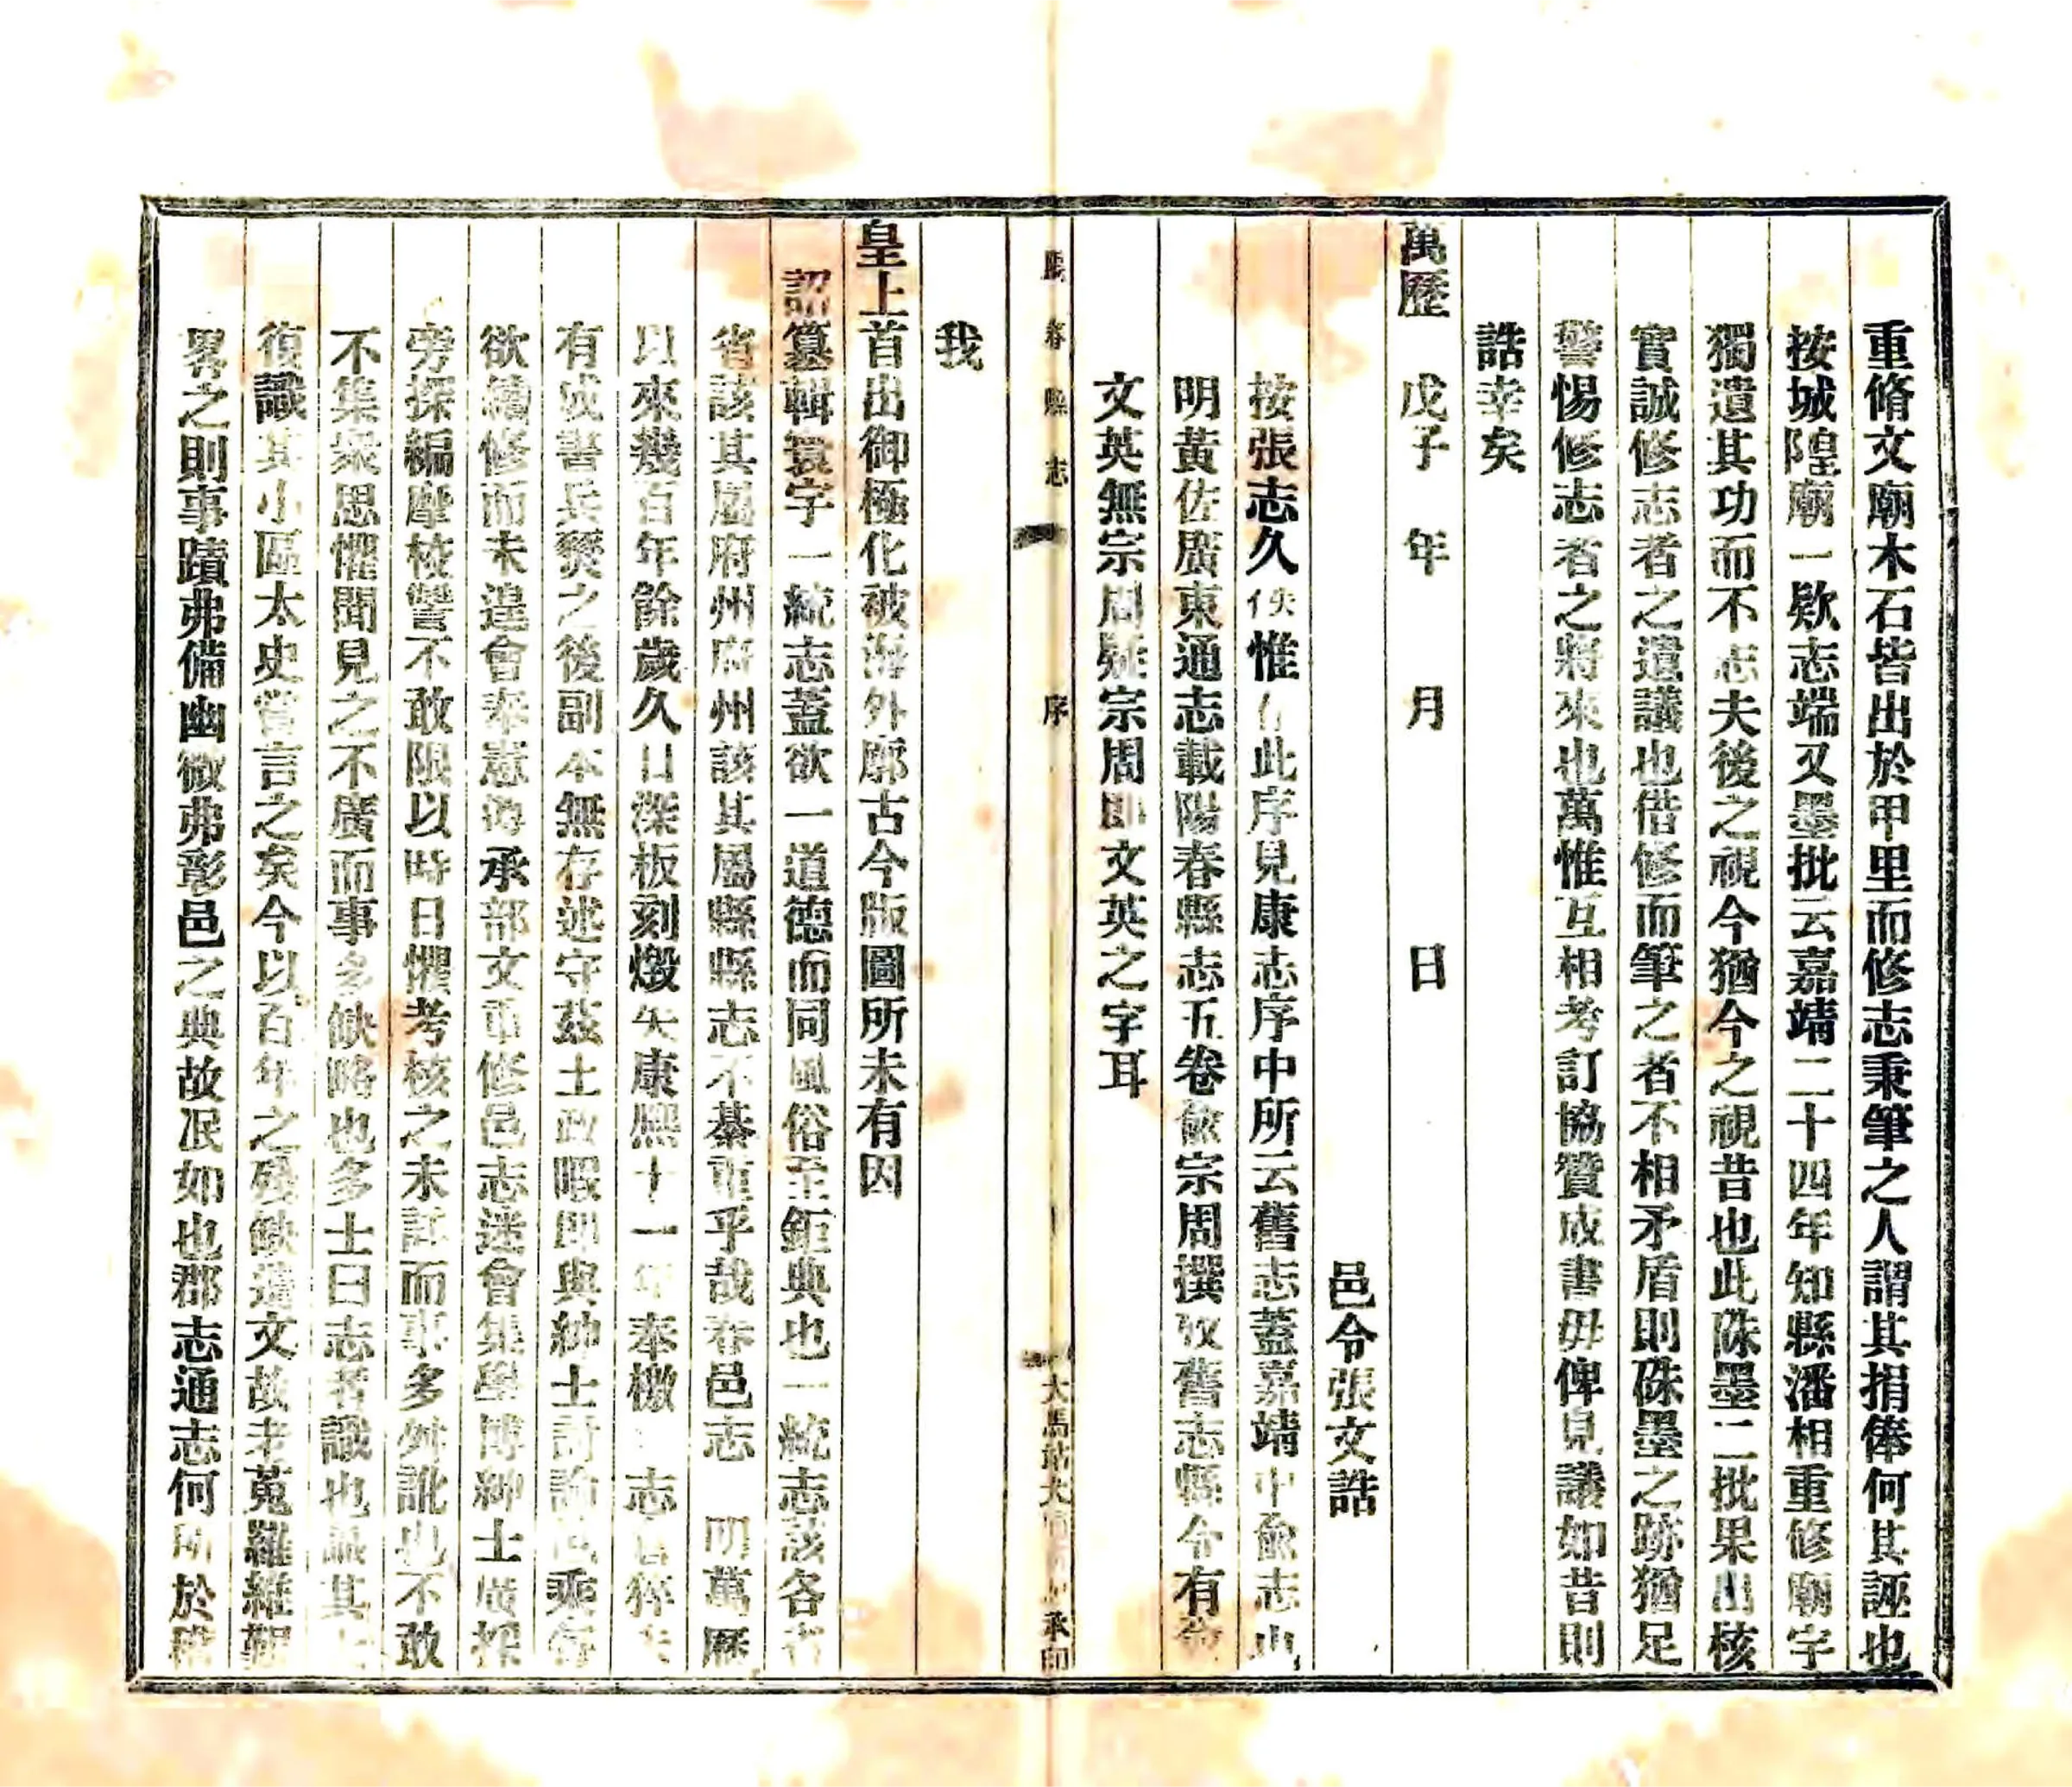 重脩文廟木石皆出於甲里而修志秉筆之人謂其捐俸何其誣也
按城隍廟一欵志端又墨批云嘉靖二十四年知縣潘相重修廟字
獨遺其功而不志夫後之視今猶今之視昔也此硃墨二批果出核
實誠修志者之遺議也借修而筆之者不相矛盾則硃墨之跡猶足
警惕修志者之將來也萬惟互相考訂協贊成書毋俾見議如昔則
誥幸矣
萬歷 戊子 年 月 日
邑令張文誥
按張志久佚惟此序見康志序中所云舊志蓋嘉靖中俞志也
明黃佐廣東通志載陽春縣志五卷俞宗周撰攷舊志縣令有俞
文英無宗周疑宗周即文英之字耳
陽春縣志 序
我
皇上首出御極化被海外廓古今版圖所未有因
詔篡輯寰宇一統志蓋欲一道德而同風俗至鉅典也一統志該各省
省該其屬府州府州該其屬縣縣志不綦重乎哉春邑志 明萬歷
以來幾百年餘歲久日深板刻燬矣康熙十一年奉檄志
有成書兵燹之後副本無存述守茲土政暇即與紳士討論乘每
欲續修而未遑會奉憲海承部文重修邑志遂會集學博紳士廣採
旁探編摩校讐不敢限以時日懼考核之未詳而事多舛訛也不敢
不集衆思懼聞見之不廣而事多缺略也多士曰志者識也識其大
復識其小區太史嘗言之矣今以百年之殘缺遺文故老蒐羅維艱
畧之則事蹟弗備幽微弗彰邑之典故泯如也郡志通志何所於